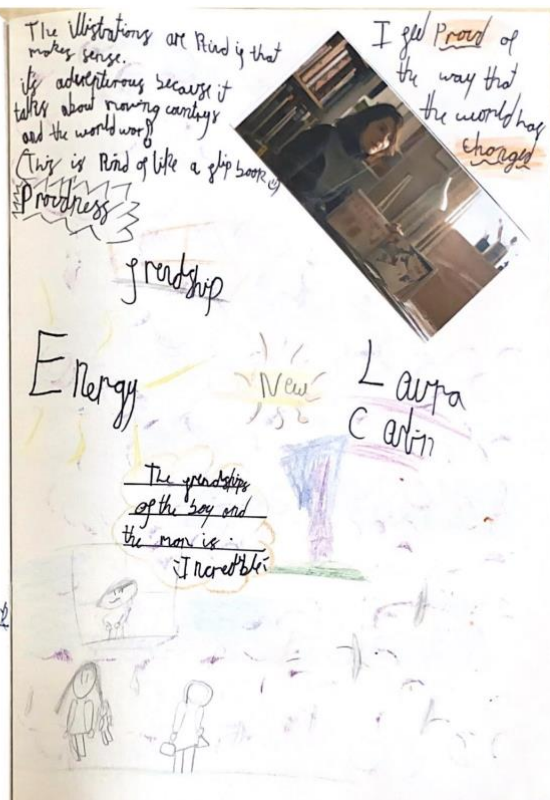 The illistrations are kind if that
makes sense.
its adveterous because it
talks about moving countrys
and the world war
(This is kind of like a flip book
Proudness
I feel Proud of
the way that
the world has
changed
frendship
Energy
New
Laura
Carlin
The frendships
of the boy and
the man is
Incredble